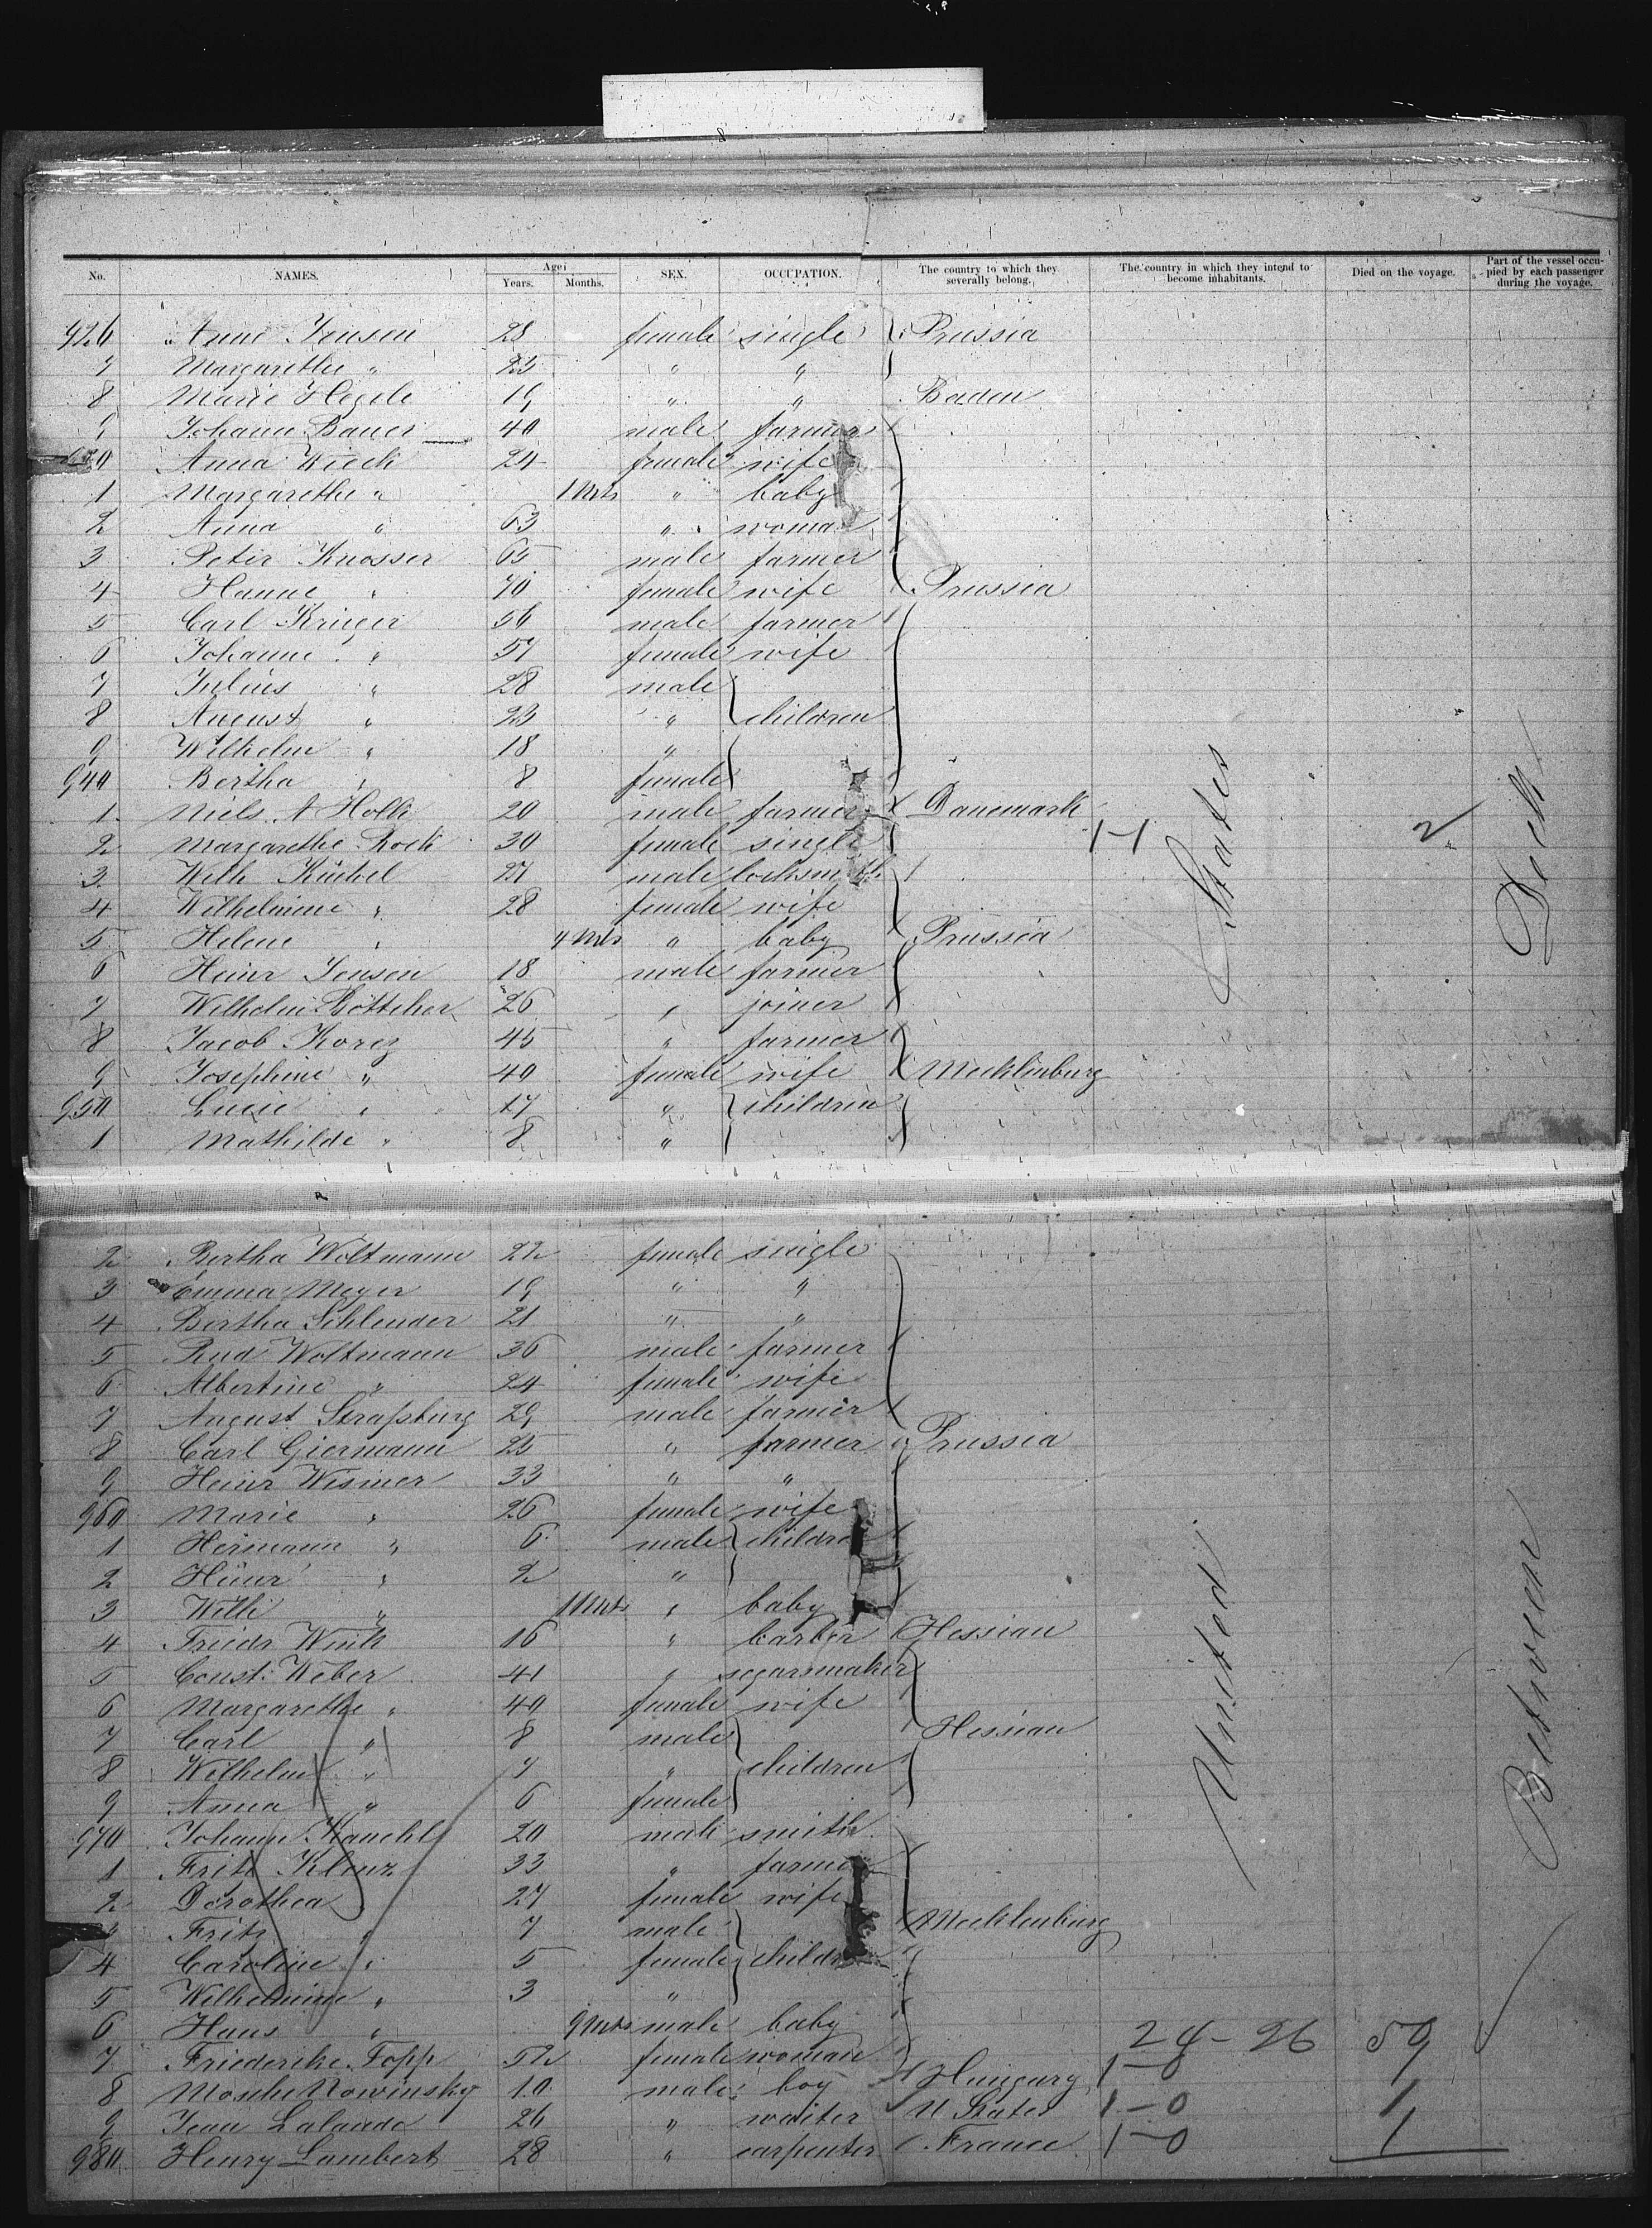 No. NAMES. Age: Years. Months. SEX. OCCUPATION. The country to which they severally belong. The country in which they intend to become inhabitants. Died on the voyage. Part of the vessel occupied by each passenger during the voyage.
926 Anne Jensen 28 female single Prussia
7 Margarethe " 25 " "
8 Marie Hegele 19 " " Baden
9 Johann Bauer 40 male farmer
Anna Wieck 24 female wife
1 Margarethe " 1 Mts " baby
2 Anna " 63 " woman
3 Peter Knosser 65 male farmer
4 Hanne " 70 female wife Prussia
5 Carl Krüger 56 male farmer
6 Johanne " 57 female wife
7 Julius " 28 male
8 August " 23 " children
9 Wilhelm " 18 "
940 Bertha " 8 female
1 Niels A Holk 20 male farmer Danemark
2 Margarethe Rock 30 female single 1-1 2
3 Wilh 27 male locksmith
4 Wilhelmine " 28 female wife
5 Helene " 4 Mts " baby Prussia
6 Heinr Jensen 18 male farmer
7 Wilhelm Böttcher 26 " joiner
8 Jacob Korez 45 " farmer
9 Josephine " 40 female wife Mecklinburg
950 Lucie " 17 " children
1 Mathilde " 8 "
2 Bertha Woltmann 22 female single
3 Emma Meyer 19 " "
4 Bertha Schlender 21 " "
5 Rud Woltmann 36 male farmer
6 Albertine " 24 female wife
7 August Straßburg 29 male farmer
8 Carl Giermann 25 " farmer Prussia
9 Heinr Wismer 33 " "
960 Marie " 26 female wife
1 Hermann " 6 male children
2 Heinr " 2 "
3 Willi " 11 Mts " baby
4 Friedr Wink 16 " barber Hessian
5 Const. Weber 41 " segarsmaker
6 Margarethe " 40 female wife
7 Carl " 8 male Hessian
8 Wilhelm " 7 " children
9 Anna " 6 female
970 Johann 20 male smith
1 Fritz Klenz 33 " farmer
2 Dorothea 27 female wife
Fritz " 7 male Mecklenburg
4 Caroline " 5 female children
5 Wilhelmine " 3 "
6 Hans " 9 Mts male baby
7 Friederike Topp 52 female woman 24-26 59
8 Nowinsky 10 male boy Hungary 1-0
9 Jean Lalande 26 " waiter U States 1-0 1
980 Henry Lambert 28 " carpenter France 1-0 1
United States
Between Deck